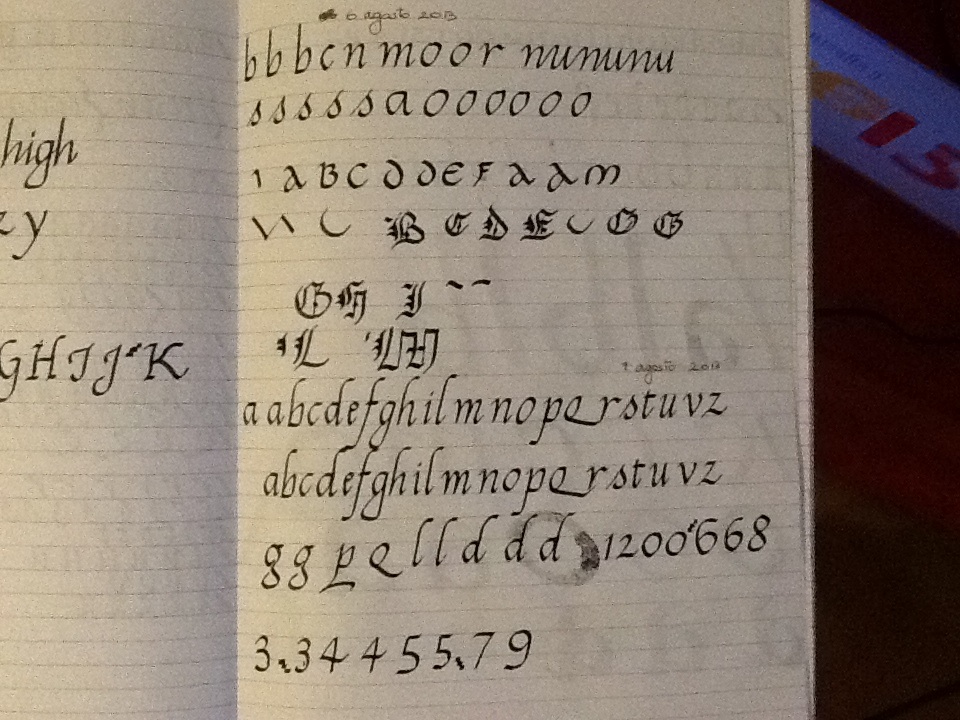 high
z y
GHIJJK
6 agosto 2013
b b b c n m o o r nununu
s s s s s s a o o o o o o
1 a B C d d e F a a m
B C D E G G
G H I
L L M
7 agosto 2013
a abcdefghilmnopqrstuvz
abcdefghilmnopqrstuvz
g g p q l l d d d 1200668
3.34 4 5 5.7 9